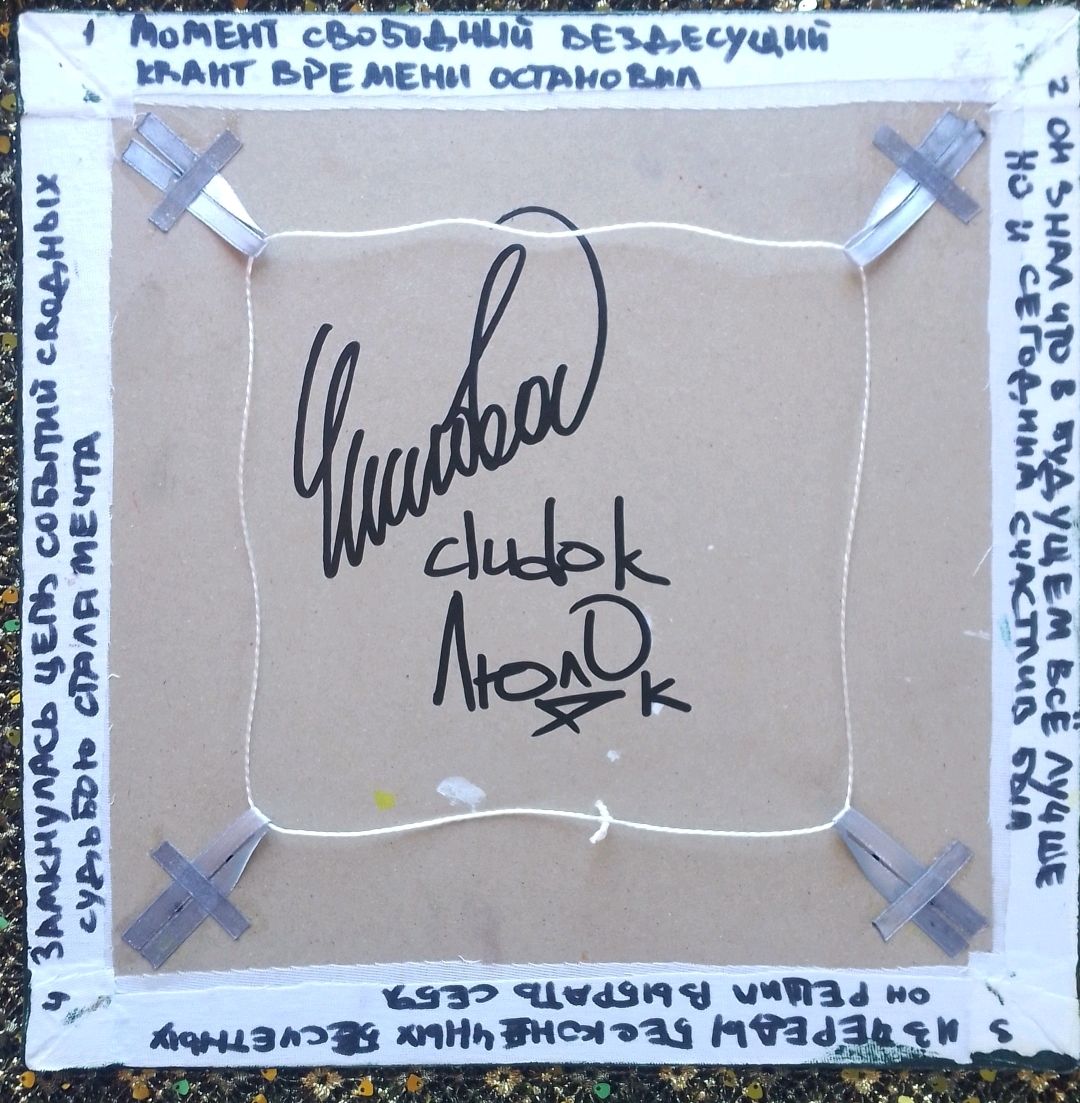 1 МОМЕНТ СВОБОДНЫЙ ВЕЗДЕСУЩИЙ
КВАНТ ВРЕМЕНИ ОСТАНОВИЛ
2 ОН ЗНАЛ ЧТО В БУДУЩЕМ ВСЁ ЛУЧШЕ
НО И СЕГОДНЯ СЧАСТЛИВ БЫЛ
3 ИЗ ЧЕРЕДЫ БЕСКОНЕЧНЫХ БЕСЧЕТНЫХ
ОН РЕШИЛ ВЫБРАТЬ СЕБЯ
4 ЗАМКНУЛАСЬ ЦЕПЬ СОБЫТИЙ СВОДНЫХ
СУДЬБОЮ СТАЛА МЕЧТА